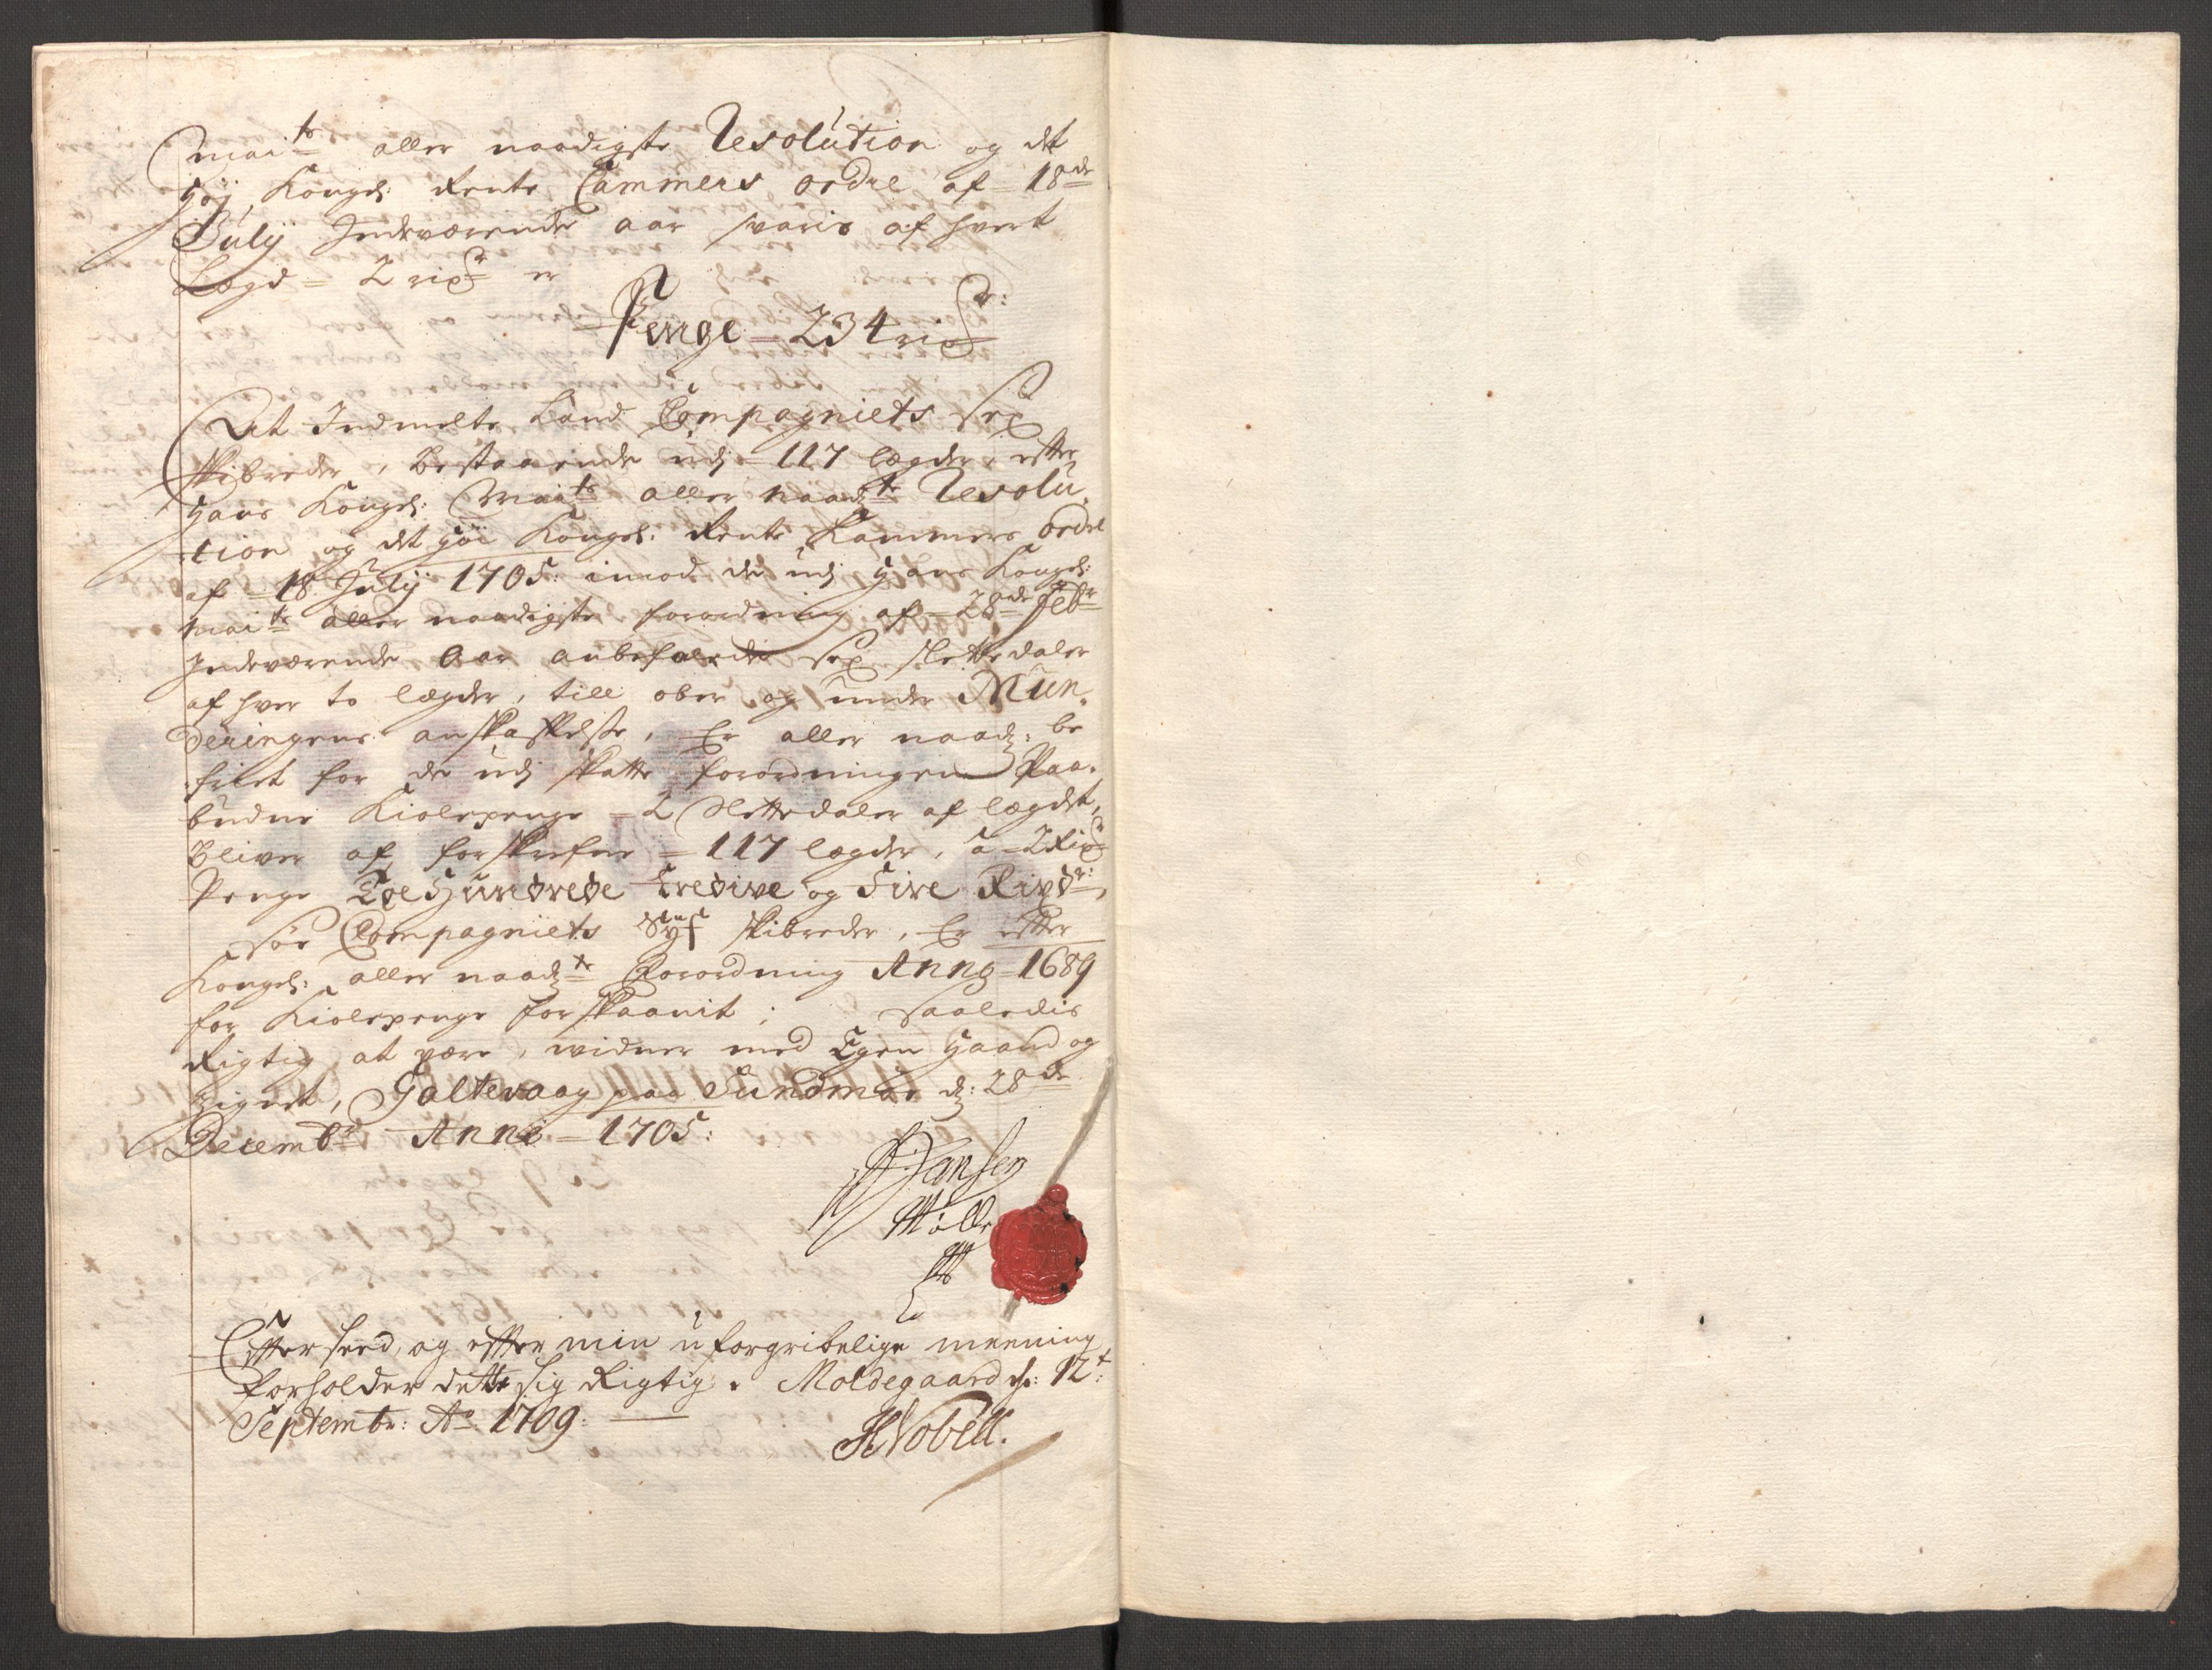 Mai.te aller naadigste Resolution og det
høj Kongl: Rente Cammers ordre af 18de
Julÿ Indeværende aar svaris af hvert
Lægd = 2 rixdr er
Penge = 234 rixdr:
At Indmelte Land Compagniets Sex
skibreder, bestaaende udj = 117 lægder, efter
Hans Kongl: Mai.te aller naadste Resolu-
tion og det høi Kongel: Rente Kammers ordre
af = 18 Julÿ 1705: imod de udj Hans Kongl:
Mai.te aller naadigste forordning af = 28de Febr
Indeværende Aar anbefalede Sex slettedaler
af hver to lægder, till ober og under Mun-
deringens anskaffelse, Er aller naadg: be
friet for de udj skatte forordningen Paa-
budne Kiolepenge = 2 Slettedaler af lægdet,
Bliver af forskrefne = 117 lægder, a = 2 Rixdr
Penge Toe Hundrede Tredive og Fire Rixdr:,
Sør Compagniets Syf skibreder, Er efter
Kongl: aller naadste Forordning Anno = 1689
for Kiolepenge forskaanit; Saaledis
Rigtig at være, widner med Egen Haand og
Zignet, Galtevaag paa Sundmør d: 28de
Decembr Anno = 1705:
Hansen
Mølle
Efterseed, og efter min uforgribelige meening
forholder dette sig Rigtig. Moldegaard d: 12t:
Septembr: Ao 1709:
HNobell.